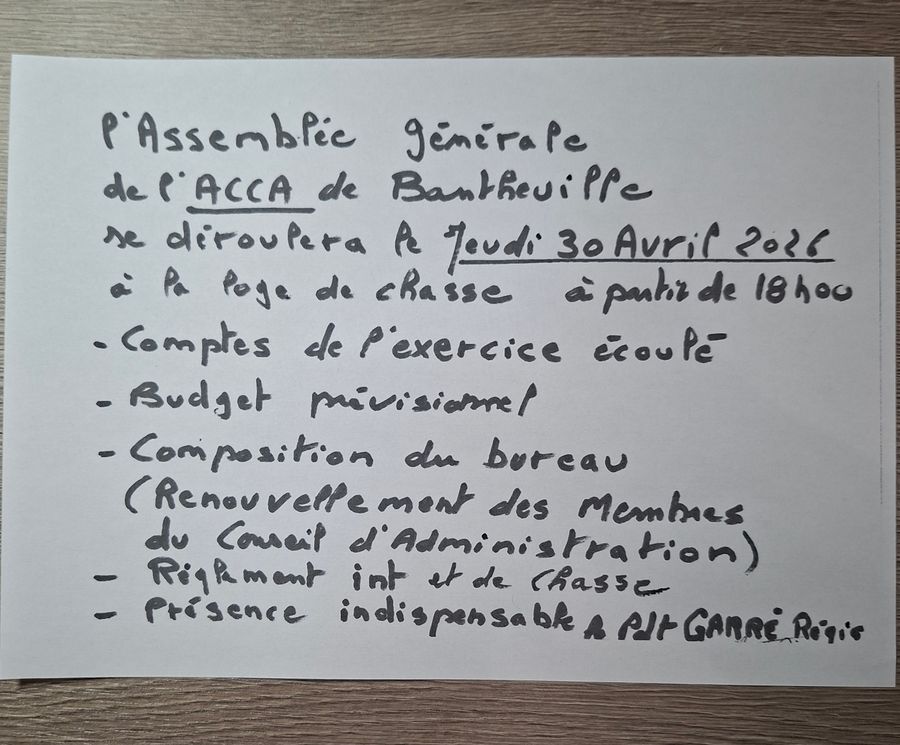 l'Assemblée générale
de l'ACCA de Bantheville
se déroulera le Jeudi 30 Avril 2026
à la loge de chasse à partir de 18h00
- Comptes de l'exercice écoulé
- Budget prévisionnel
- Composition du bureau
(Renouvellement des Membres
du Conseil d'Administration)
- Réglement int et de Chasse
- Présence indispensable le Pdt GARRÉ Régis